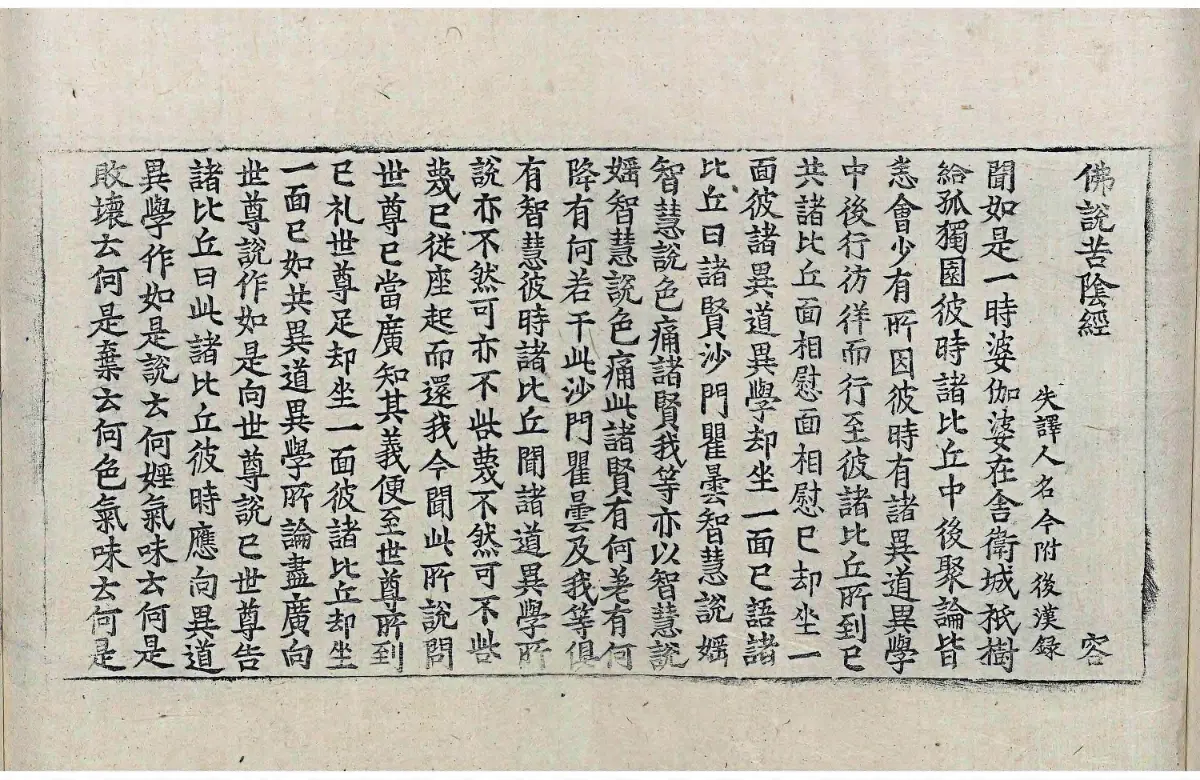 佛說苦陰經 容
失譯人名今附後漢録
聞如是一時婆伽婆在舎衛城祇樹
給孤獨園彼時諸比丘中後聚論皆
悉會少有所因彼時有諸異道異學
中後行彷徉而行至彼諸比丘所到已
共諸比丘面相慰面相慰已却坐一
面彼諸異道異學却坐一面已語諸
比丘曰諸賢沙門瞿曇智慧說婬
智慧說色痛諸賢我等亦以智慧說
婬智慧說色痛此諸賢有何差有何
降有何若干此沙門瞿曇及我等俱
有智慧彼時諸比丘聞諸道異學所
說亦不然可亦不呰蔑不然可不呰
蔑已從座起而還我今聞此所說問
世尊已當廣知其義便至世尊所到
已礼世尊足却坐一面彼諸比丘却坐
一面已如共異道異學所論盡廣向
世尊說作如是向世尊說已世尊告
諸比丘曰此諸比丘彼時應向異道
異學作如是說云何婬氣味云何是
敗壞云何是棄云何色氣味云何是